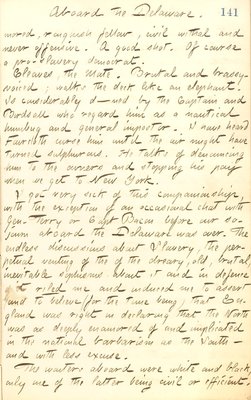 Aboard the Delaware.
141
nured, roughish fellow, civil withal and
never offensive. A good shot. Of course
a pro-Slavery democrat.
Cleaves, the Mate. Brutal and brassy-
voiced; walks the deck like an elephant.
Is considerably d—ned by the Captain and
Birdsall who regard him as a nautical
humbug and general impostor. I have heard
Fairchilds curse him until the air might have
turned sulphurous. He talks of denouncing
him to the owners and stopping his pay
when we get to New York.
I got very sick of this companionship
with the exception of an occasional chat with
Gen. Terry or Capt Bacon before our so-
journ aboard the Delaware was over. The
endless discussions about Slavery, the per-
petual venting of the of the dreary, old, brutal,
inevitable sophisms about it and in defence
it riled me and induced me to assert
and to believe (for the time being) that En-
gland was right in declaring that the North
was as deeply enamored of and implicated
in the national barbarism as the South —
and with less excuse.
The waiters aboard were white and black,
only one of the latter being civil or efficient.